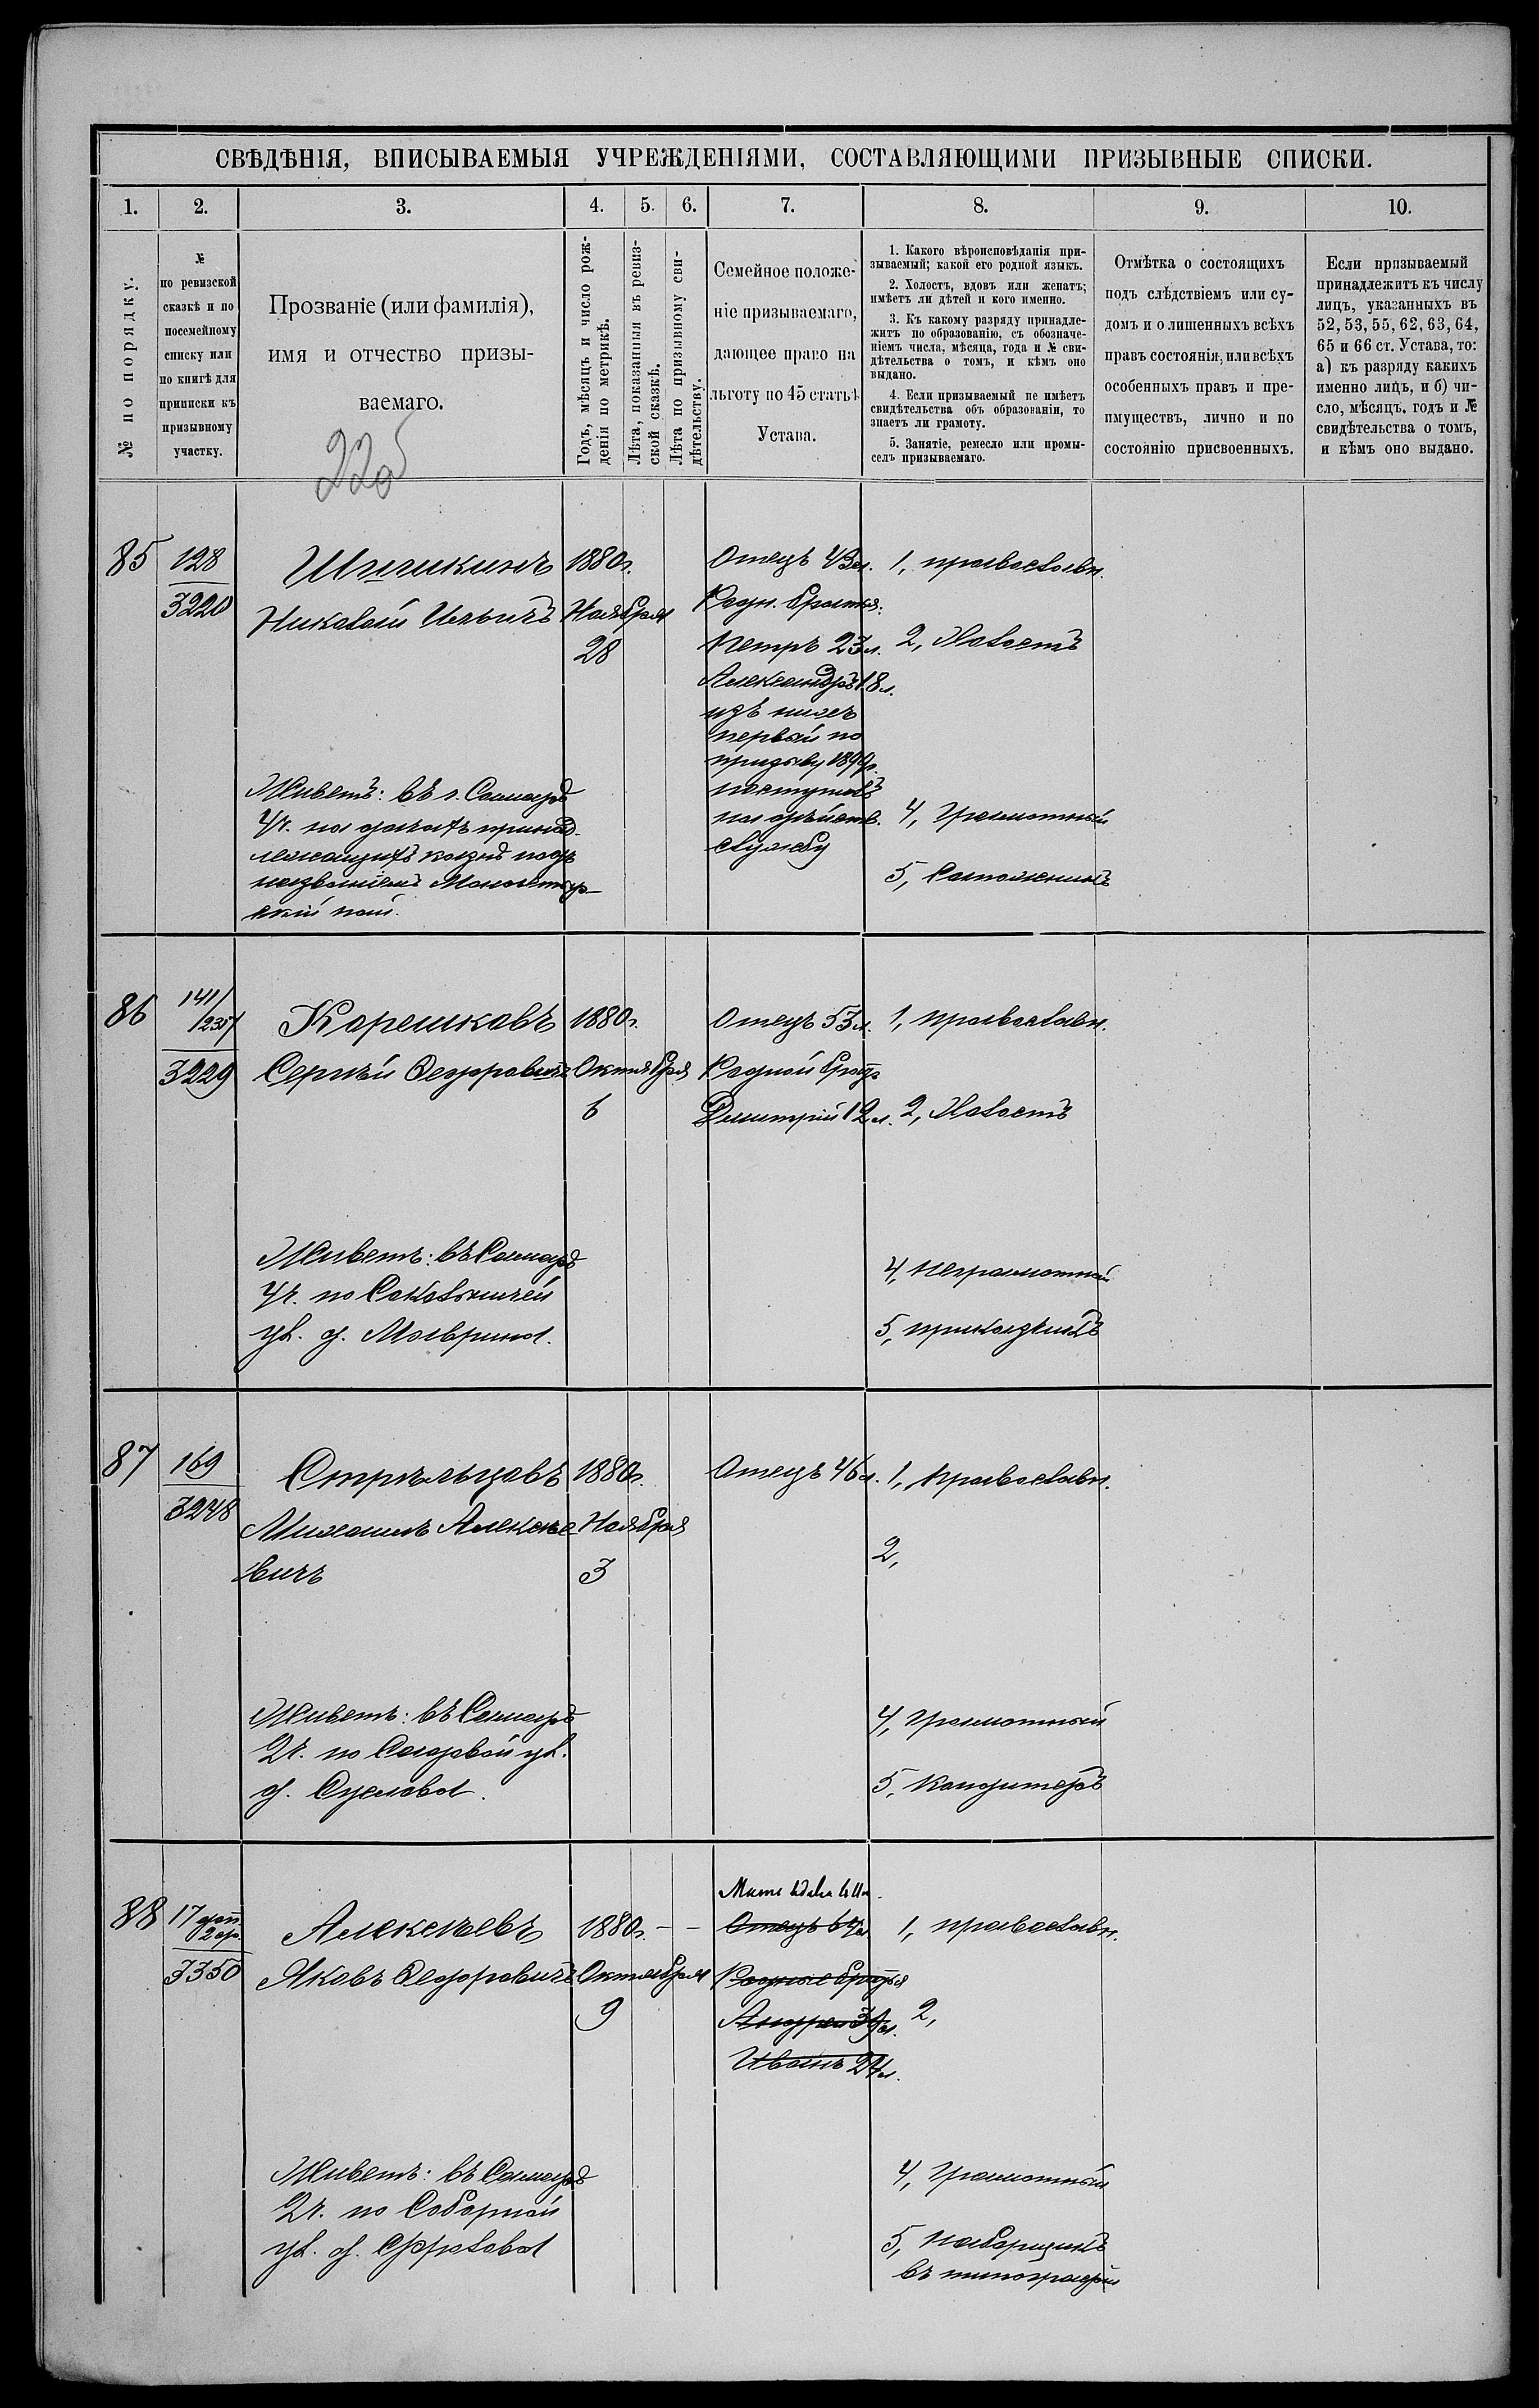 СВѢДѢНІЯ, ВПИСЫВАЕМЫЯ УЧРЕЖДЕНІЯМИ, СОСТАВЛЯЮЩИМИ ПРИЗЫВНЫЕ СПИСКИ.
1. 2. 3. 4. 5. 6. 7. 8. 9. 10.
№ по порядку.
№
по ревизской
сказкѣ и по
посемейному
списку или
по книгѣ для
приписки къ
призывному
участку.
Прозваніе (или фамилія),
имя и отчество призы-
ваемаго.
225
Годъ, мѣсяцъ и число рож-
денія по метрикѣ.
Лѣта, показанныя въ ревиз-
ской сказкѣ.
Лѣта по призывному сви-
дѣтельству.
Семейное положе-
ніе призываемаго,
дающее право на
льготу по 45 статьѣ
Устава.
1. Какого вѣроисповѣданія при-
зываемый; какой его родной языкъ.
2. Холостъ, вдовъ или женатъ;
имѣетъ ли дѣтей и кого именно.
3. Къ какому разряду принадле-
житъ по образованію, съ обозначе-
ніемъ числа, мѣсяца, года и № сви-
дѣтельства о томъ, и кѣмъ оно
выдано.
4. Если призываемый не имѣетъ
свидѣтельства объ образованіи, то
знаетъ ли грамоту.
5. Занятіе, ремесло или промы-
селъ призываемаго.
Отмѣтка о состоящихъ
подъ слѣдствіемъ или су-
домъ и о лишенныхъ всѣхъ
правъ состоянія, или всѣхъ
особенныхъ правъ и пре-
имуществъ, лично и по
состоянію присвоенныхъ.
Если призываемый
принадлежитъ къ числу
лицъ, указанныхъ въ
52, 53, 55, 62, 63, 64,
65 и 66 ст. Устава, то:
а) къ разряду какихъ
именно лицъ, и б) чи-
сло, мѣсяцъ, годъ и №
свидѣтельства о томъ,
и кѣмъ оно выдано.
85
128
3220
Шишкинъ
Николай Ильичъ
Живетъ: въ г. Самарѣ
4ч. на дачахъ принад-
лежащихъ казнѣ подъ
названіемъ Монастыр-
скій пай.
1880г.
Ноября
28
Отецъ 43л.
Родн. братья:
Петръ 23л.
Александръ 18л.
изъ нихъ
первый по
призыву 1899г.
поступилъ
на дѣйств.
службу
1, православн.
2, Холостъ
4, Грамотный
5, Сапожникъ
86
141/
1235/
3229
Корешковъ
Сергѣй Ѳедоровичъ
Живетъ: въ Самарѣ
4ч. по Сокольничей
ул. д. Маврина.
1880г.
Октября
6
Отецъ 53л.
Родной братъ
Димитрій 12л.
1, православн.
2, Холостъ
4, неграмотный
5, приказчикъ
87
169
3248
Стрѣльцовъ
Михаилъ Алексѣе
вичъ
Живетъ: въ Самарѣ
2ч. по Садовой ул.
д. Суслова.
1880г.
Ноября
3
Отецъ 46л.
1, Православн.
2,
4, Грамотный
5, Кондитеръ
88
17 доп.
3350
Алексѣевъ
Яковъ Ѳедоровичъ
Живетъ: въ Самарѣ
2ч. по Соборной
ул. д. Фролова
1880г. – –
Октября
9
Мать вдова
Отецъ
Родные братья
Андрей 39л.
Иванъ 24л.
1, православн.
2,
4, Грамотный
5, Наборщикъ
въ типографіи